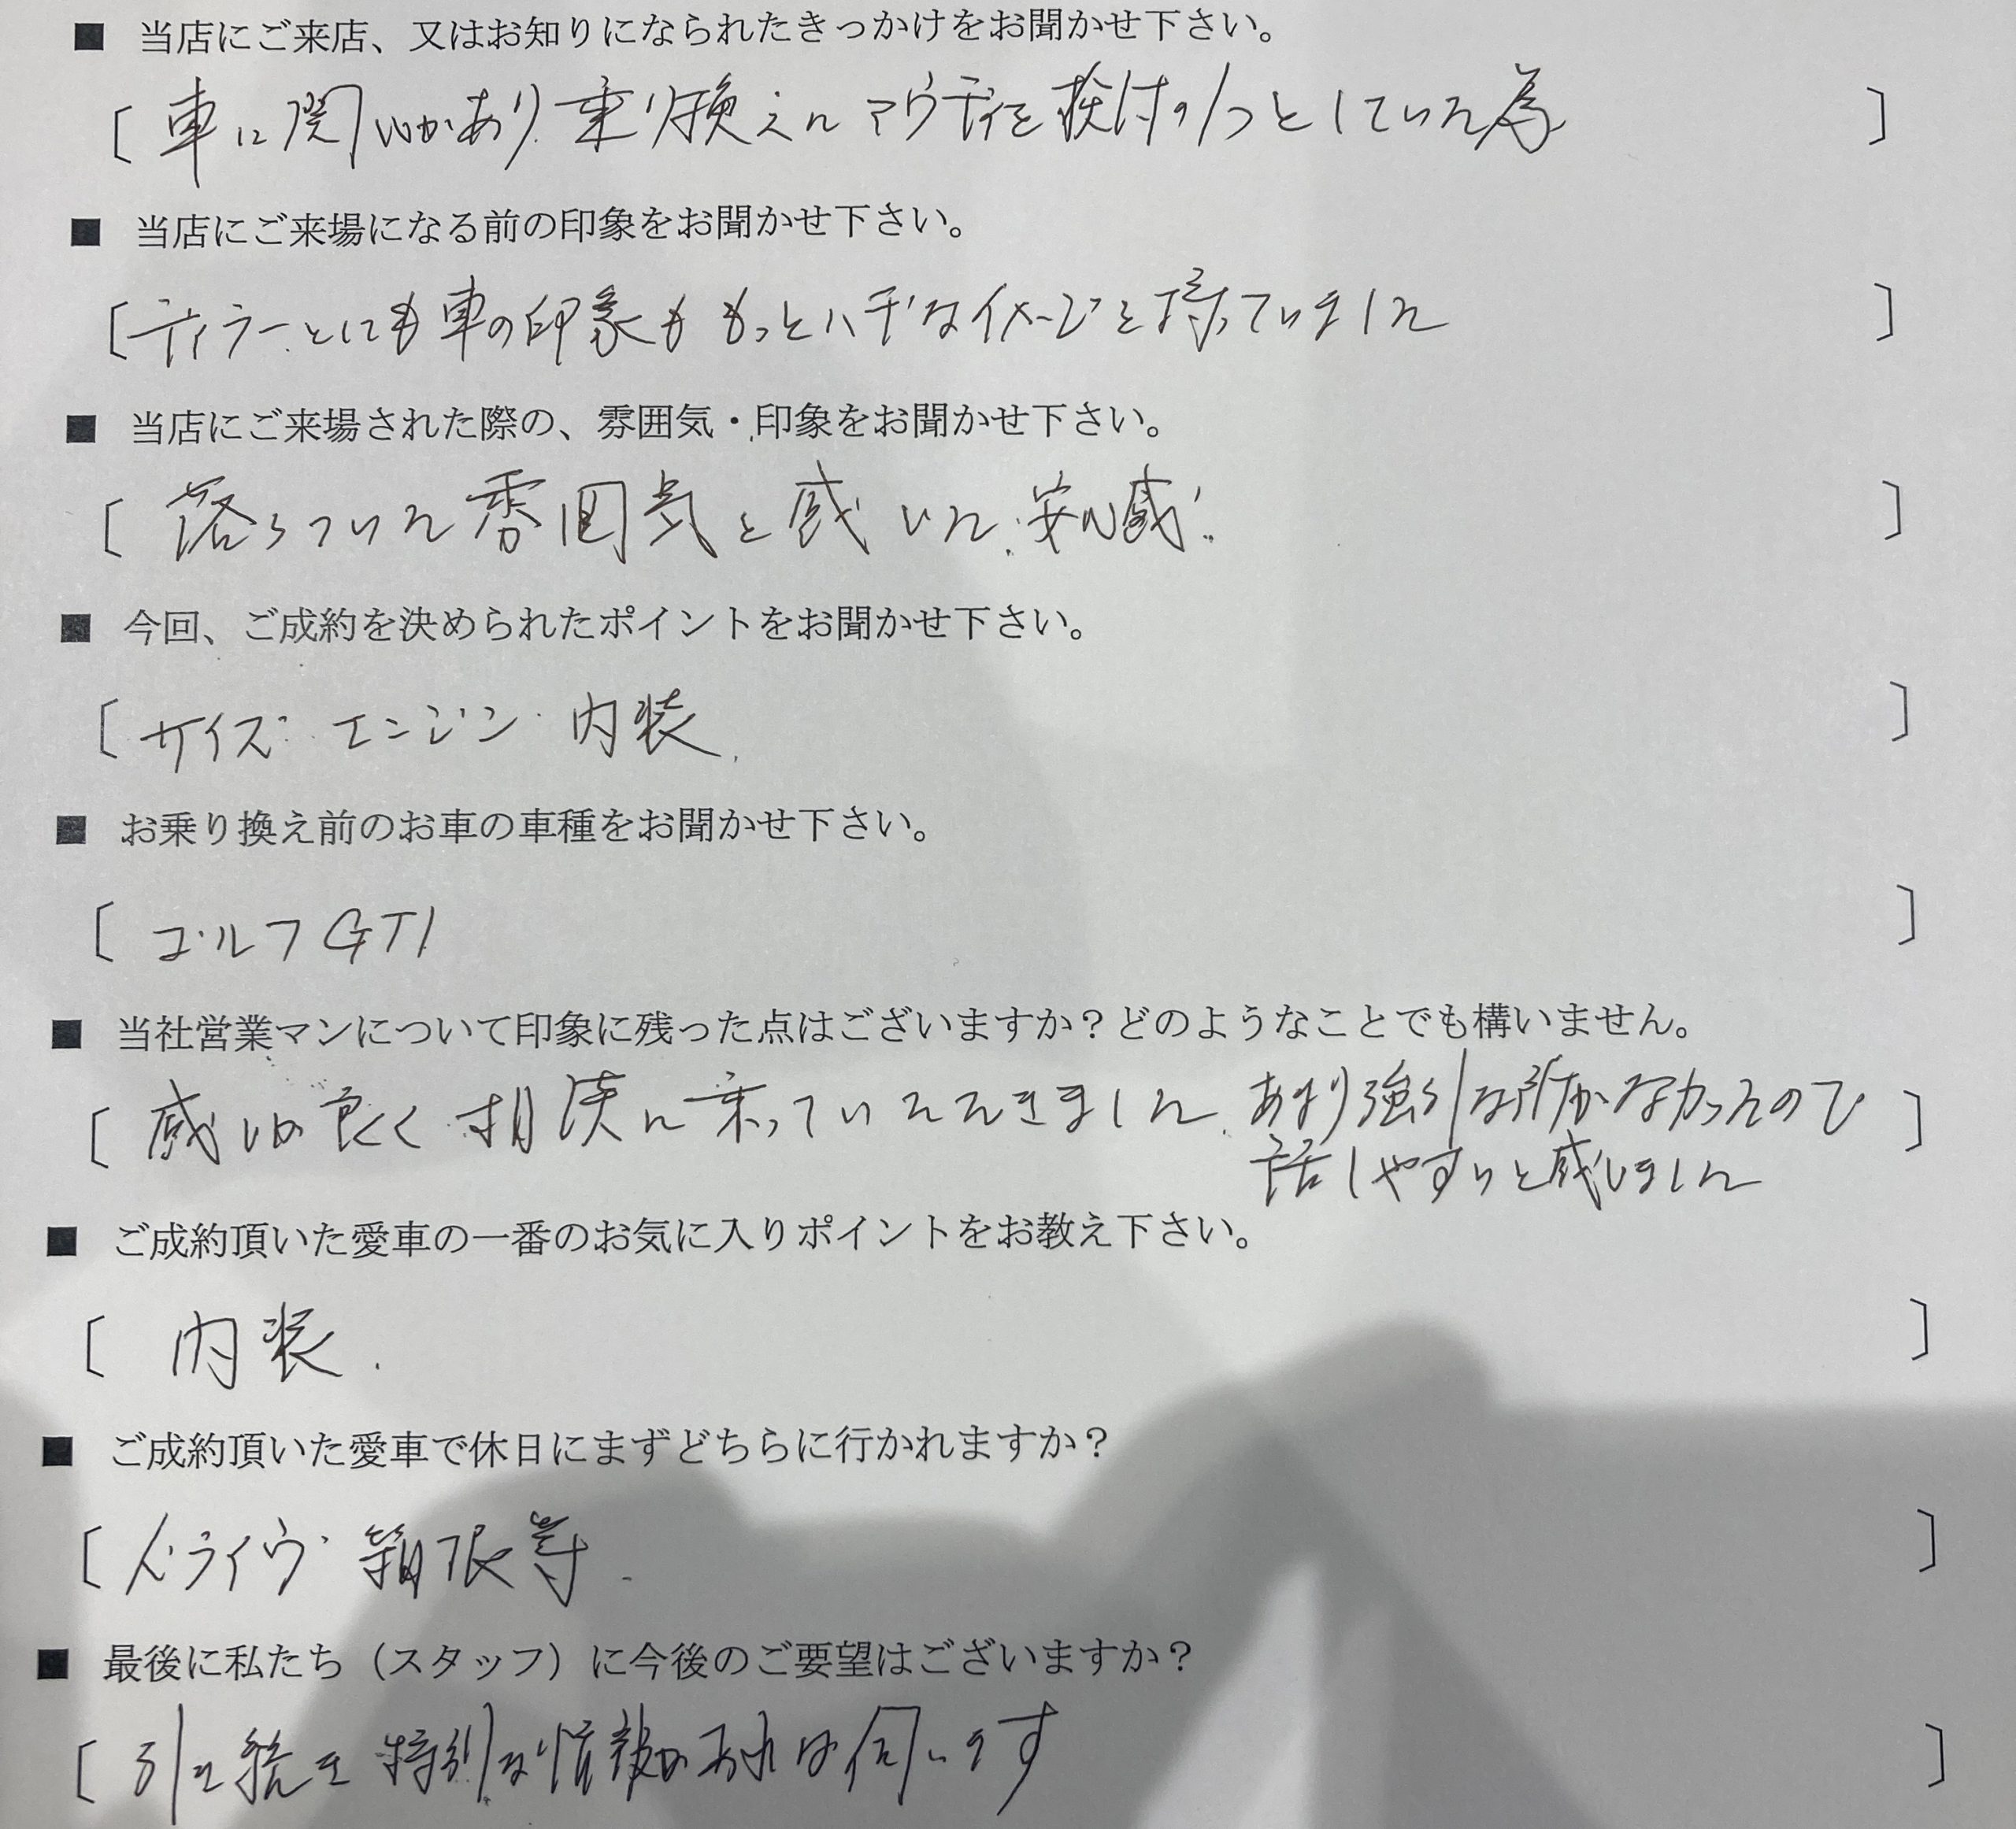 ■ 当店にご来店、又はお知りになられたきっかけをお聞かせ下さい。
〔車に関心があり 乗り換えにアウディを候補の1つとしていた為〕
■ 当店にご来場になる前の印象をお聞かせ下さい。
〔ディーラーとしても車の印象ももっとハデなイメージを持っていました〕
■ 当店にご来場された際の、雰囲気・印象をお聞かせ下さい。
〔落ちついた雰囲気を感じた.安心感!〕
■ 今回、ご成約を決められたポイントをお聞かせ下さい。
〔サイズ エンジン 内装.〕
■ お乗り換え前のお車の車種をお聞かせ下さい。
〔ゴルフGTI〕
■ 当社営業マンについて印象に残った点はございますか？どのようなことでも構いません。
〔感じが良く相談に乗っていただきました.あまり強引な所がなかったので〕
話しやすいと感じました
■ ご成約頂いた愛車の一番のお気に入りポイントをお教え下さい。
〔内装.〕
■ ご成約頂いた愛車で休日にまずどちらに行かれますか？
〔ドライヴ 箱根等.〕
■ 最後に私たち（スタッフ）に今後のご要望はございますか？
〔引き続き特別な情報があれば伺います〕